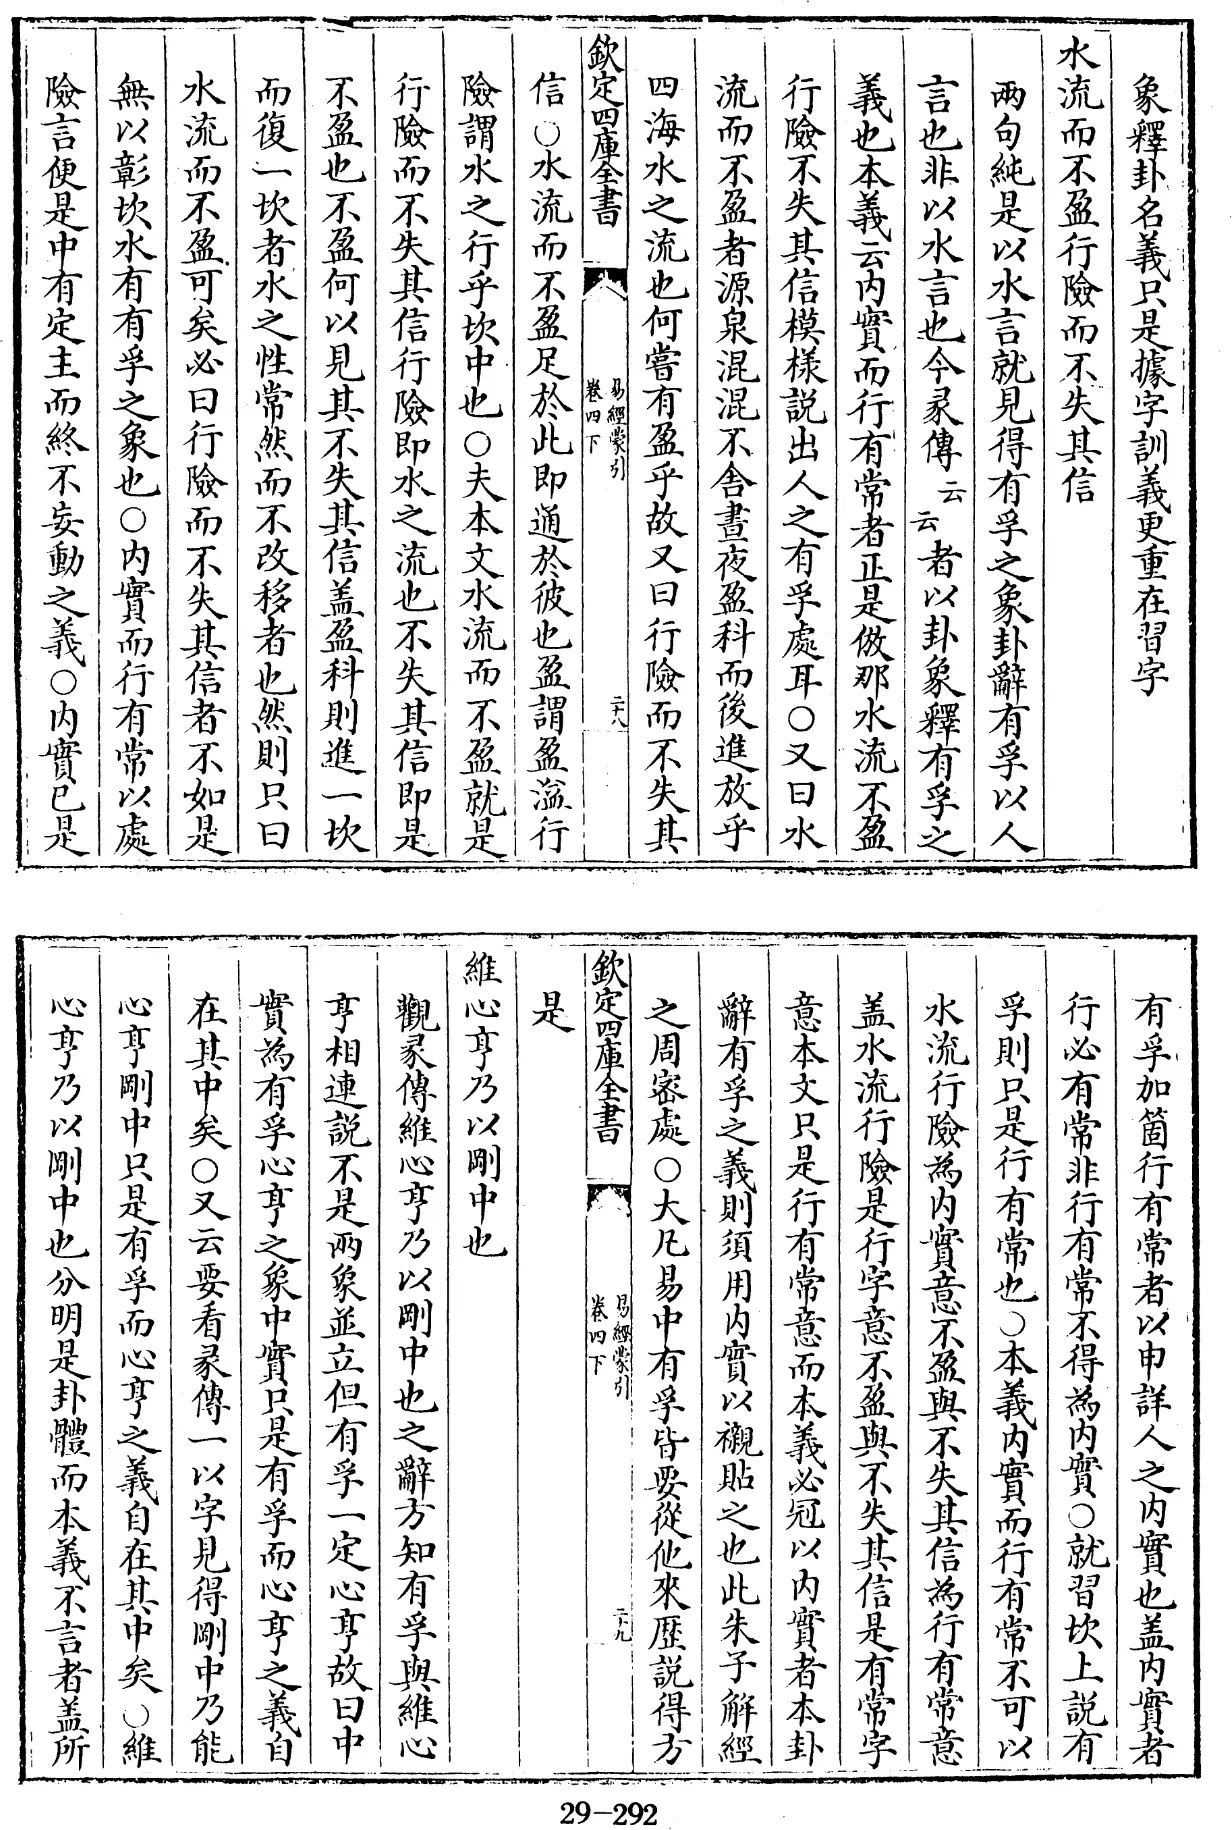 象釋卦名義只是據字訓義更重在習字
水流而不盈行險而不失其信
兩句純是以水言就見得有孚之象卦辭有孚以人
言也非以水言也今彖傳云云者以卦象釋有孚之
義也本義云内實而行有常者正是倣那水流不盈
行險不失其信模樣説出人之有孚處耳○又曰水
流而不盈者源泉混混不舍晝夜盈科而後進放乎
四海水之流也何嘗有盈乎故又曰行險而不失其
欽定四庫全書
易經蒙引
卷四下
二十八
信○水流而不盈足於此即通於彼也盈謂盈溢行
險謂水之行乎坎中也○夫本文水流而不盈就是
行險而不失其信行險即水之流也不失其信即是
不盈也不盈何以見其不失其信盖盈科則進一坎
而復一坎者水之性常然而不改移者也然則只曰
水流而不盈可矣必曰行險而不失其信者不如是
無以彰坎水有有孚之象也○内實而行有常以處
險言便是中有定主而終不妄動之義○内實已是
有孚加箇行有常者以申詳人之内實也盖内實者
行必有常非行有常不得為内實○就習坎上説有
孚則只是行有常也○本義内實而行有常不可以
水流行險為内實意不盈與不失其信為行有常意
盖水流行險是行字意不盈與不失其信是有常字
意本文只是行有常意而本義必冠以内實者本卦
辭有孚之義則須用内實以襯貼之也此朱子解經
之周密處○大凡易中有孚皆要從他來歴説得方
欽定四庫全書
易經蒙引
卷四下
二十九
是
維心亨乃以剛中也
觀彖傳維心亨乃以剛中也之辭方知有孚與維心
亨相連説不是兩象並立但有孚一定心亨故曰中
實為有孚心亨之象中實只是有孚而心亨之義自
在其中矣○又云要看彖傳一以字見得剛中乃能
心亨剛中只是有孚而心亨之義自在其中矣○維
心亨乃以剛中也分明是卦體而本義不言者盖所
29-292